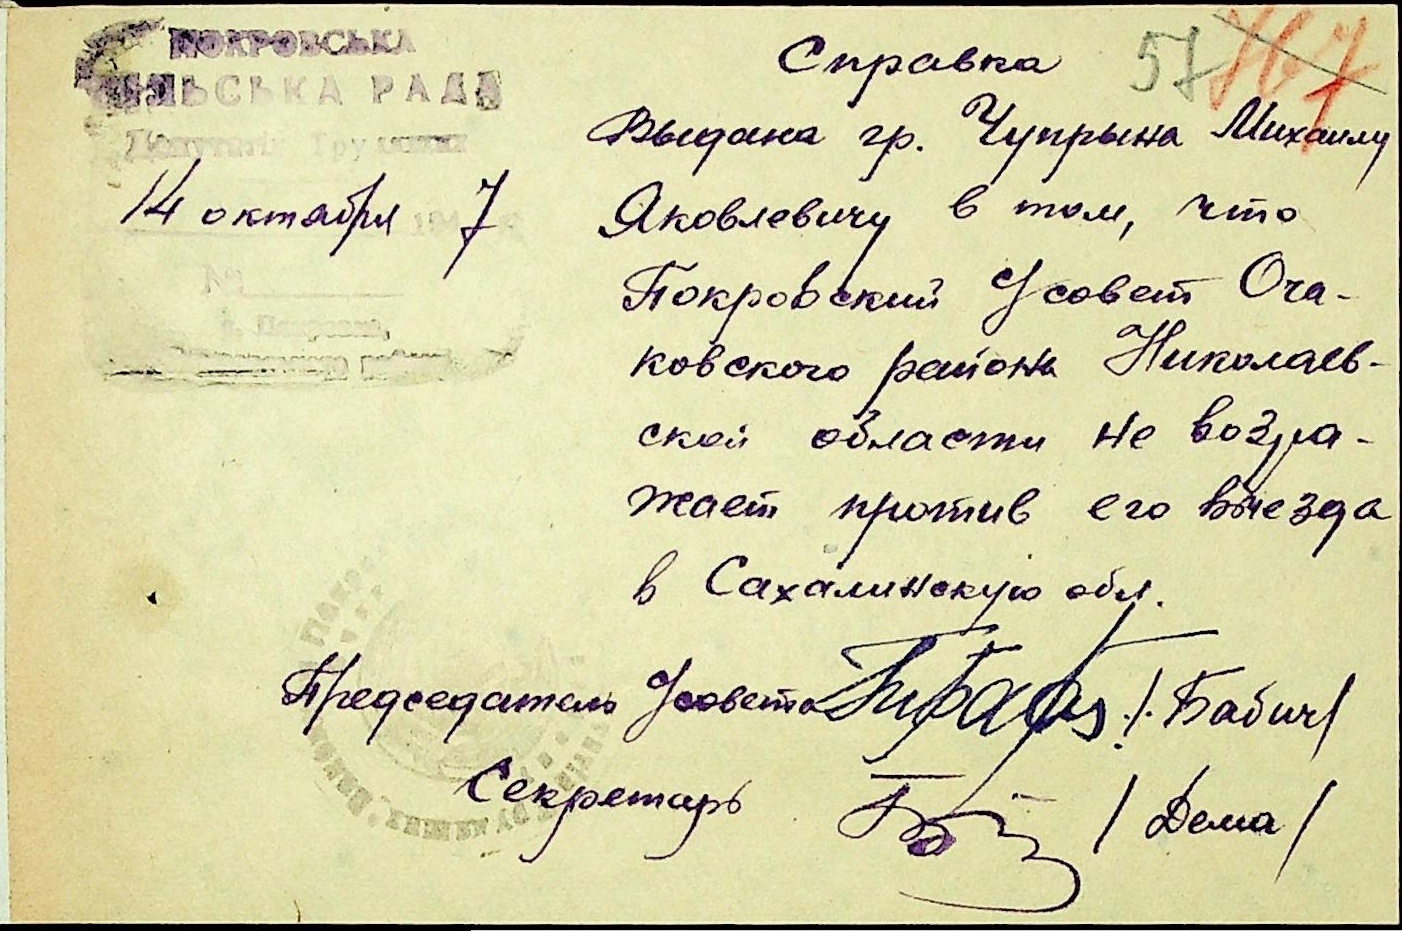 ПОКРОВСЬКА
СІЛЬСЬКА РАДА
Депутатів Трудящих
14 октября 194 7
№
с. Покровка,
Справка
57 167
Выдана гр. Чупрына Михаилу
Яковлевичу в том, что
Покровский с/совет Оча-
ковского района Николаев-
ской области не возра-
жает против его выезда
в Сахалинскую обл.
Председатель с/совета /Бабич/
Секретарь /Дема/